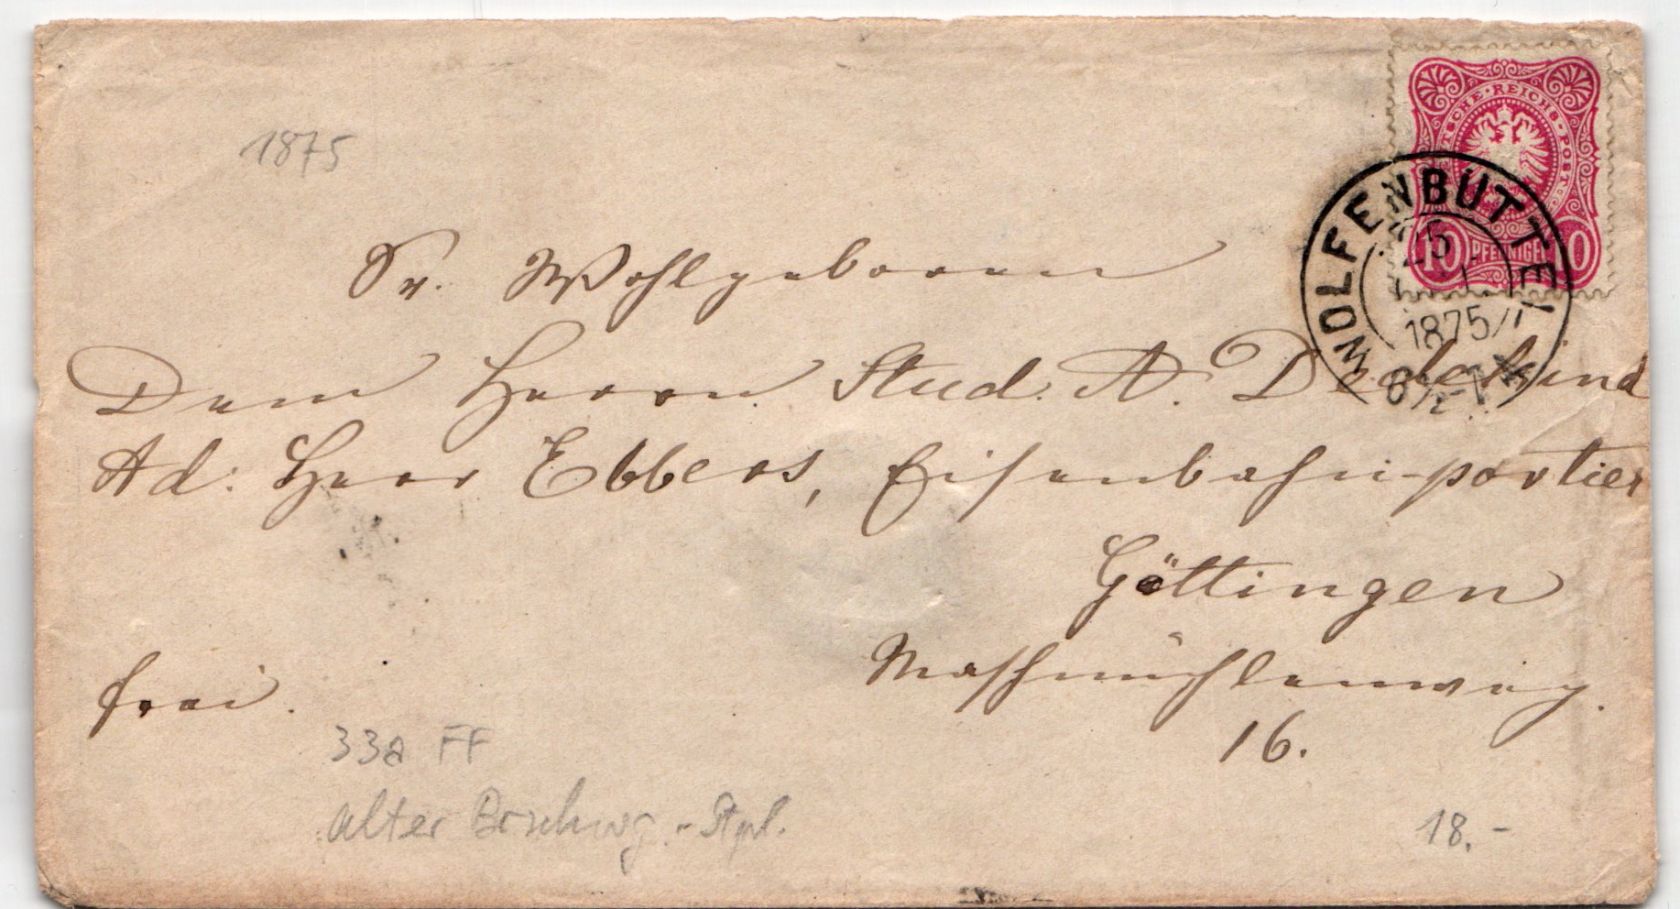 1875
DEUTSCHE·REICHS-POST
10 PFENNIGE 10
WOLFENBÜTTEL
25
1875
Sr. Wohlgeboren
Dem Herrn Stud. A. Dedekind
Ad: Herr Ebbers, Eisenbahn-portier
Göttingen
Maschmühlenweg.
16.
frei.
33a FF
alter Brschwg.-Stpl.
18.-